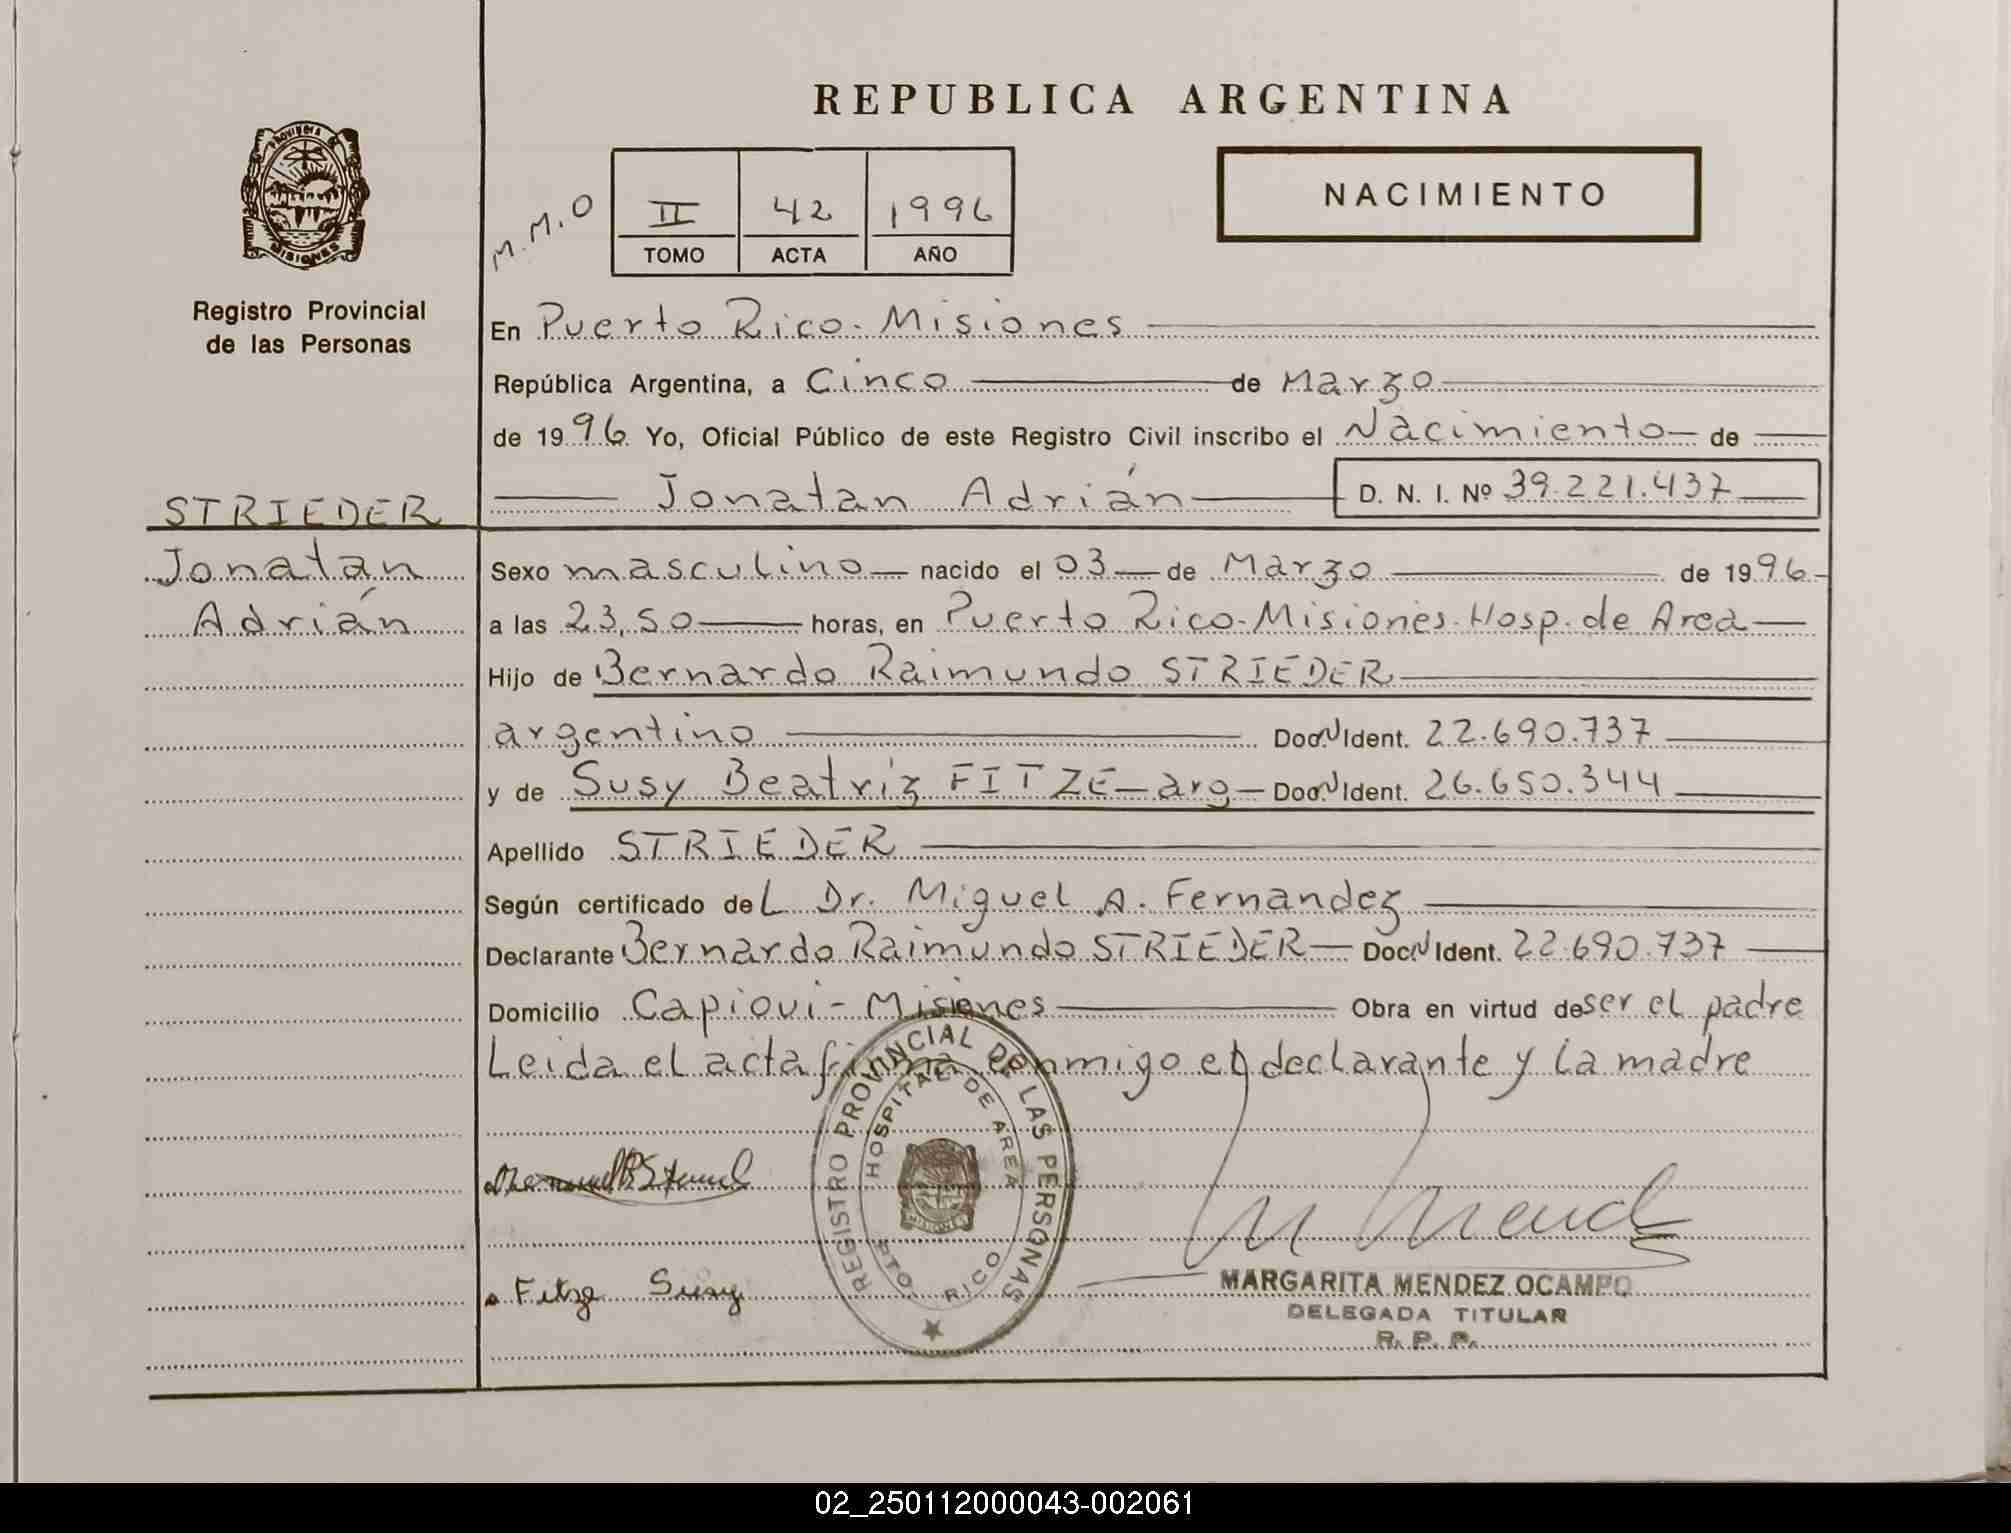 REPUBLICA ARGENTINA
PROVINCIA
MISIONES
Registro Provincial
de las Personas
M.M.O
II 42 1996
TOMO ACTA AÑO
NACIMIENTO
En Puerto Rico. Misiones
República Argentina, a Cinco de Marzo
de 1996 Yo, Oficial Público de este Registro Civil inscribo el Nacimiento de
Jonatan Adrián D. N. I. Nº 39.221.437
STRIEDER
Jonatan
Adrián
Sexo masculino nacido el 03 de Marzo de 1996
a las 23,50 horas, en Puerto Rico-Misiones. Hosp. de Area
Hijo de Bernardo Raimundo STRIEDER
argentino Doc. N Ident. 22.690.737
y de Susy Beatriz FITZE - arg - Doc. N Ident. 26.650.344
Apellido STRIEDER
Según certificado del Dr. Miguel A. Fernandez
Declarante Bernardo Raimundo STRIEDER Doc. N Ident. 22.690.737
Domicilio Capiovi - Misiones Obra en virtud de ser el padre
Leida el acta firma conmigo el declarante y la madre
REGISTRO PROVINCIAL DE LAS PERSONAS
HOSPITAL DE AREA
MISIONES
PTO. RICO
Fitze Susy
MARGARITA MENDEZ OCAMPO
DELEGADA TITULAR
R. P. P.
02_250112000043-002061